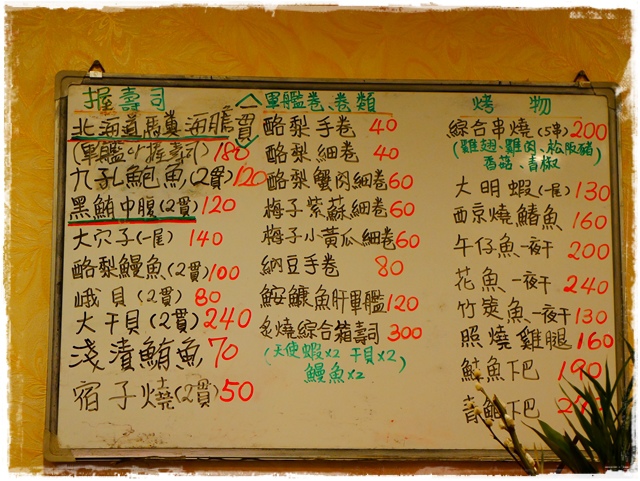 握壽司
北海道馬糞海膽
(軍艦or握壽司) 180
九孔鮑魚(2貫) 120
黑鮪中腹(2貫) 120
大穴子(一尾) 140
酪梨鰻魚(2貫) 100
峨貝(2貫) 80
大干貝(2貫) 240
淺漬鮪魚 70
宿子燒(2貫) 50
軍艦卷、卷類
酪梨手卷 40
酪梨細卷 40
酪梨蟹肉細卷 60
梅子紫蘇細卷 60
梅子小黃瓜細卷 60
納豆手卷 80
鮟鱇魚肝軍艦 120
炙燒綜合箱壽司 300
(天使蝦x2 干貝x2)
鰻魚x2
烤物
綜合串燒(5串) 200
(雞翅、雞肉、松阪豬
香菇、青椒)
大明蝦(一尾) 130
西京燒鰆魚 160
午仔魚一夜干 200
花魚一夜干 240
竹筴魚一夜干 130
照燒雞腿 160
鮭魚下巴 190
下巴